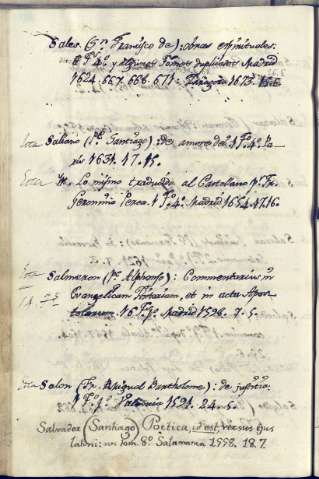 Sales. (Sn. Francisco de): obras espirituales.
8 Ts. 4º. y algunos tomos duplicados Madrid
1624. 667. 668. 671: Zaragoza 1673.
Saliano (Po. Santiago): de amore dei 1 Tº. 4º. Pa
ris 1631. 47. 15.
Yt. Lo mismo traducido al Castellano Pr. Fr.
Geronimo Perea 1 Tº. 4º. Madrid 1654. 47.16.
Salmeron (Po. Alphonso): Commentarius in
Evangelicam Historiam, et in acta Apos
tolorum 16 Ts. Fº. Madrid 1598. 7. 5.
Salon (Fr. Miguel Bartholome): de justitia.
1 Tº. 4º. Valencia 1591. 24. 5.
Salvador (Santiago) Poetica, id est, versus que
latini: un tom. 8º. Salamanca 1558. 18.7